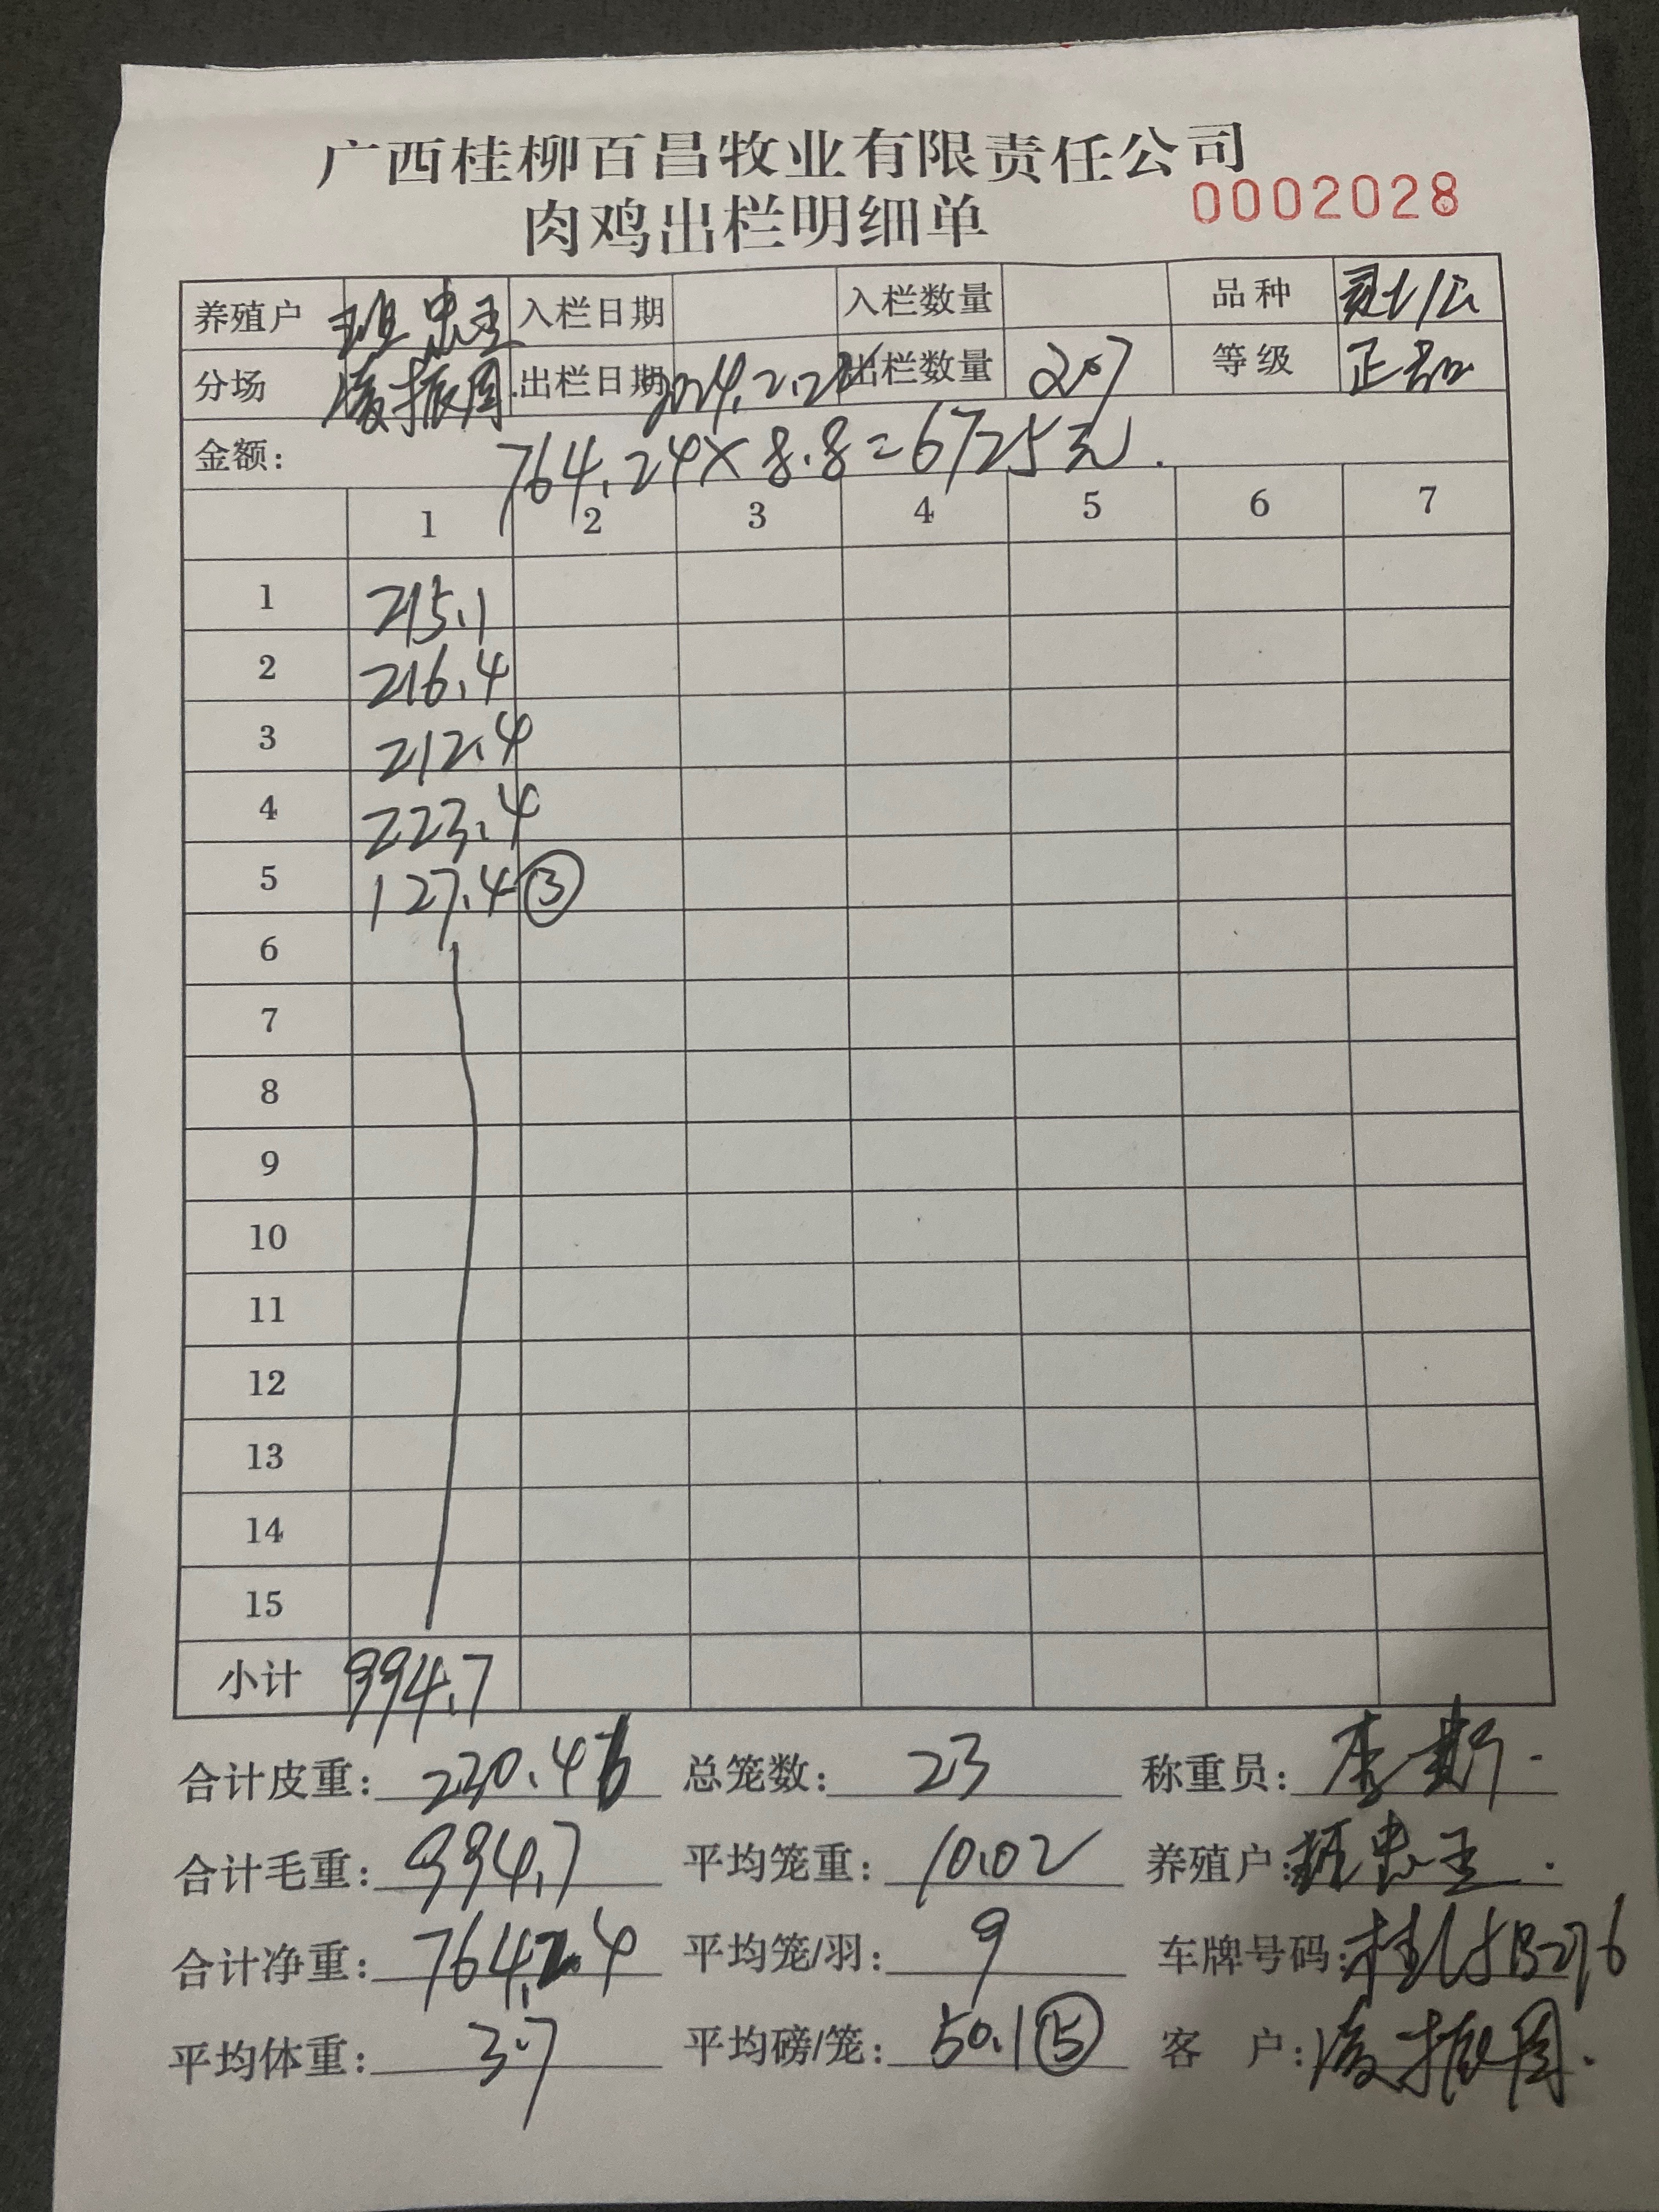 广西桂柳百昌牧业有限责任公司
肉鸡出栏明细单 0002028
养殖户 班忠王 入栏日期 入栏数量 品种
分场 凌振周 出栏日期 2024.2.24 出栏数量 207 等级 正品
金额: 764.24×8.8=6725元.
1 2 3 4 5 6 7
1 215.1
2 216.4
3 212.4
4 223.4
5 127.4 ③
6
7
8
9
10
11
12
13
14
15
小计 994.7
合计皮重: 230.46 总笼数: 23 称重员:
合计毛重: 994.7 平均笼重: 10.02 养殖户: 班忠王
合计净重: 764.24 平均笼/羽: 9 车牌号码:
平均体重: 3.7 平均磅/笼: 50.1⑤ 客 户: 凌振周